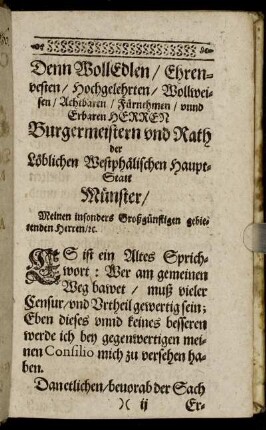 Denn WollEdlen / Ehren-
vesten / Hochgelehrten / Wollwei-
sen / Achtbaren / Fürnehmen / vnnd
Erbaren HERREN
Burgermeistern vnd Rath
der
Löblichen Westphälischen Haupt-
Statt
Münster /
Meinen insonders Großgünstigen gebie-
tenden Herren / ꝛc.
ES ist ein Altes Sprich-
wort : Wer am gemeinen
Weg bawet / muß vieler
Censur / vnd Vrtheil gewertig sein;
Eben dieses vnnd keines besseren
werde ich bey gegenwertigen mei-
nen Consilio mich zu versehen ha-
ben.
Dan etlichen / beuorab der Sach
)( ij Er-